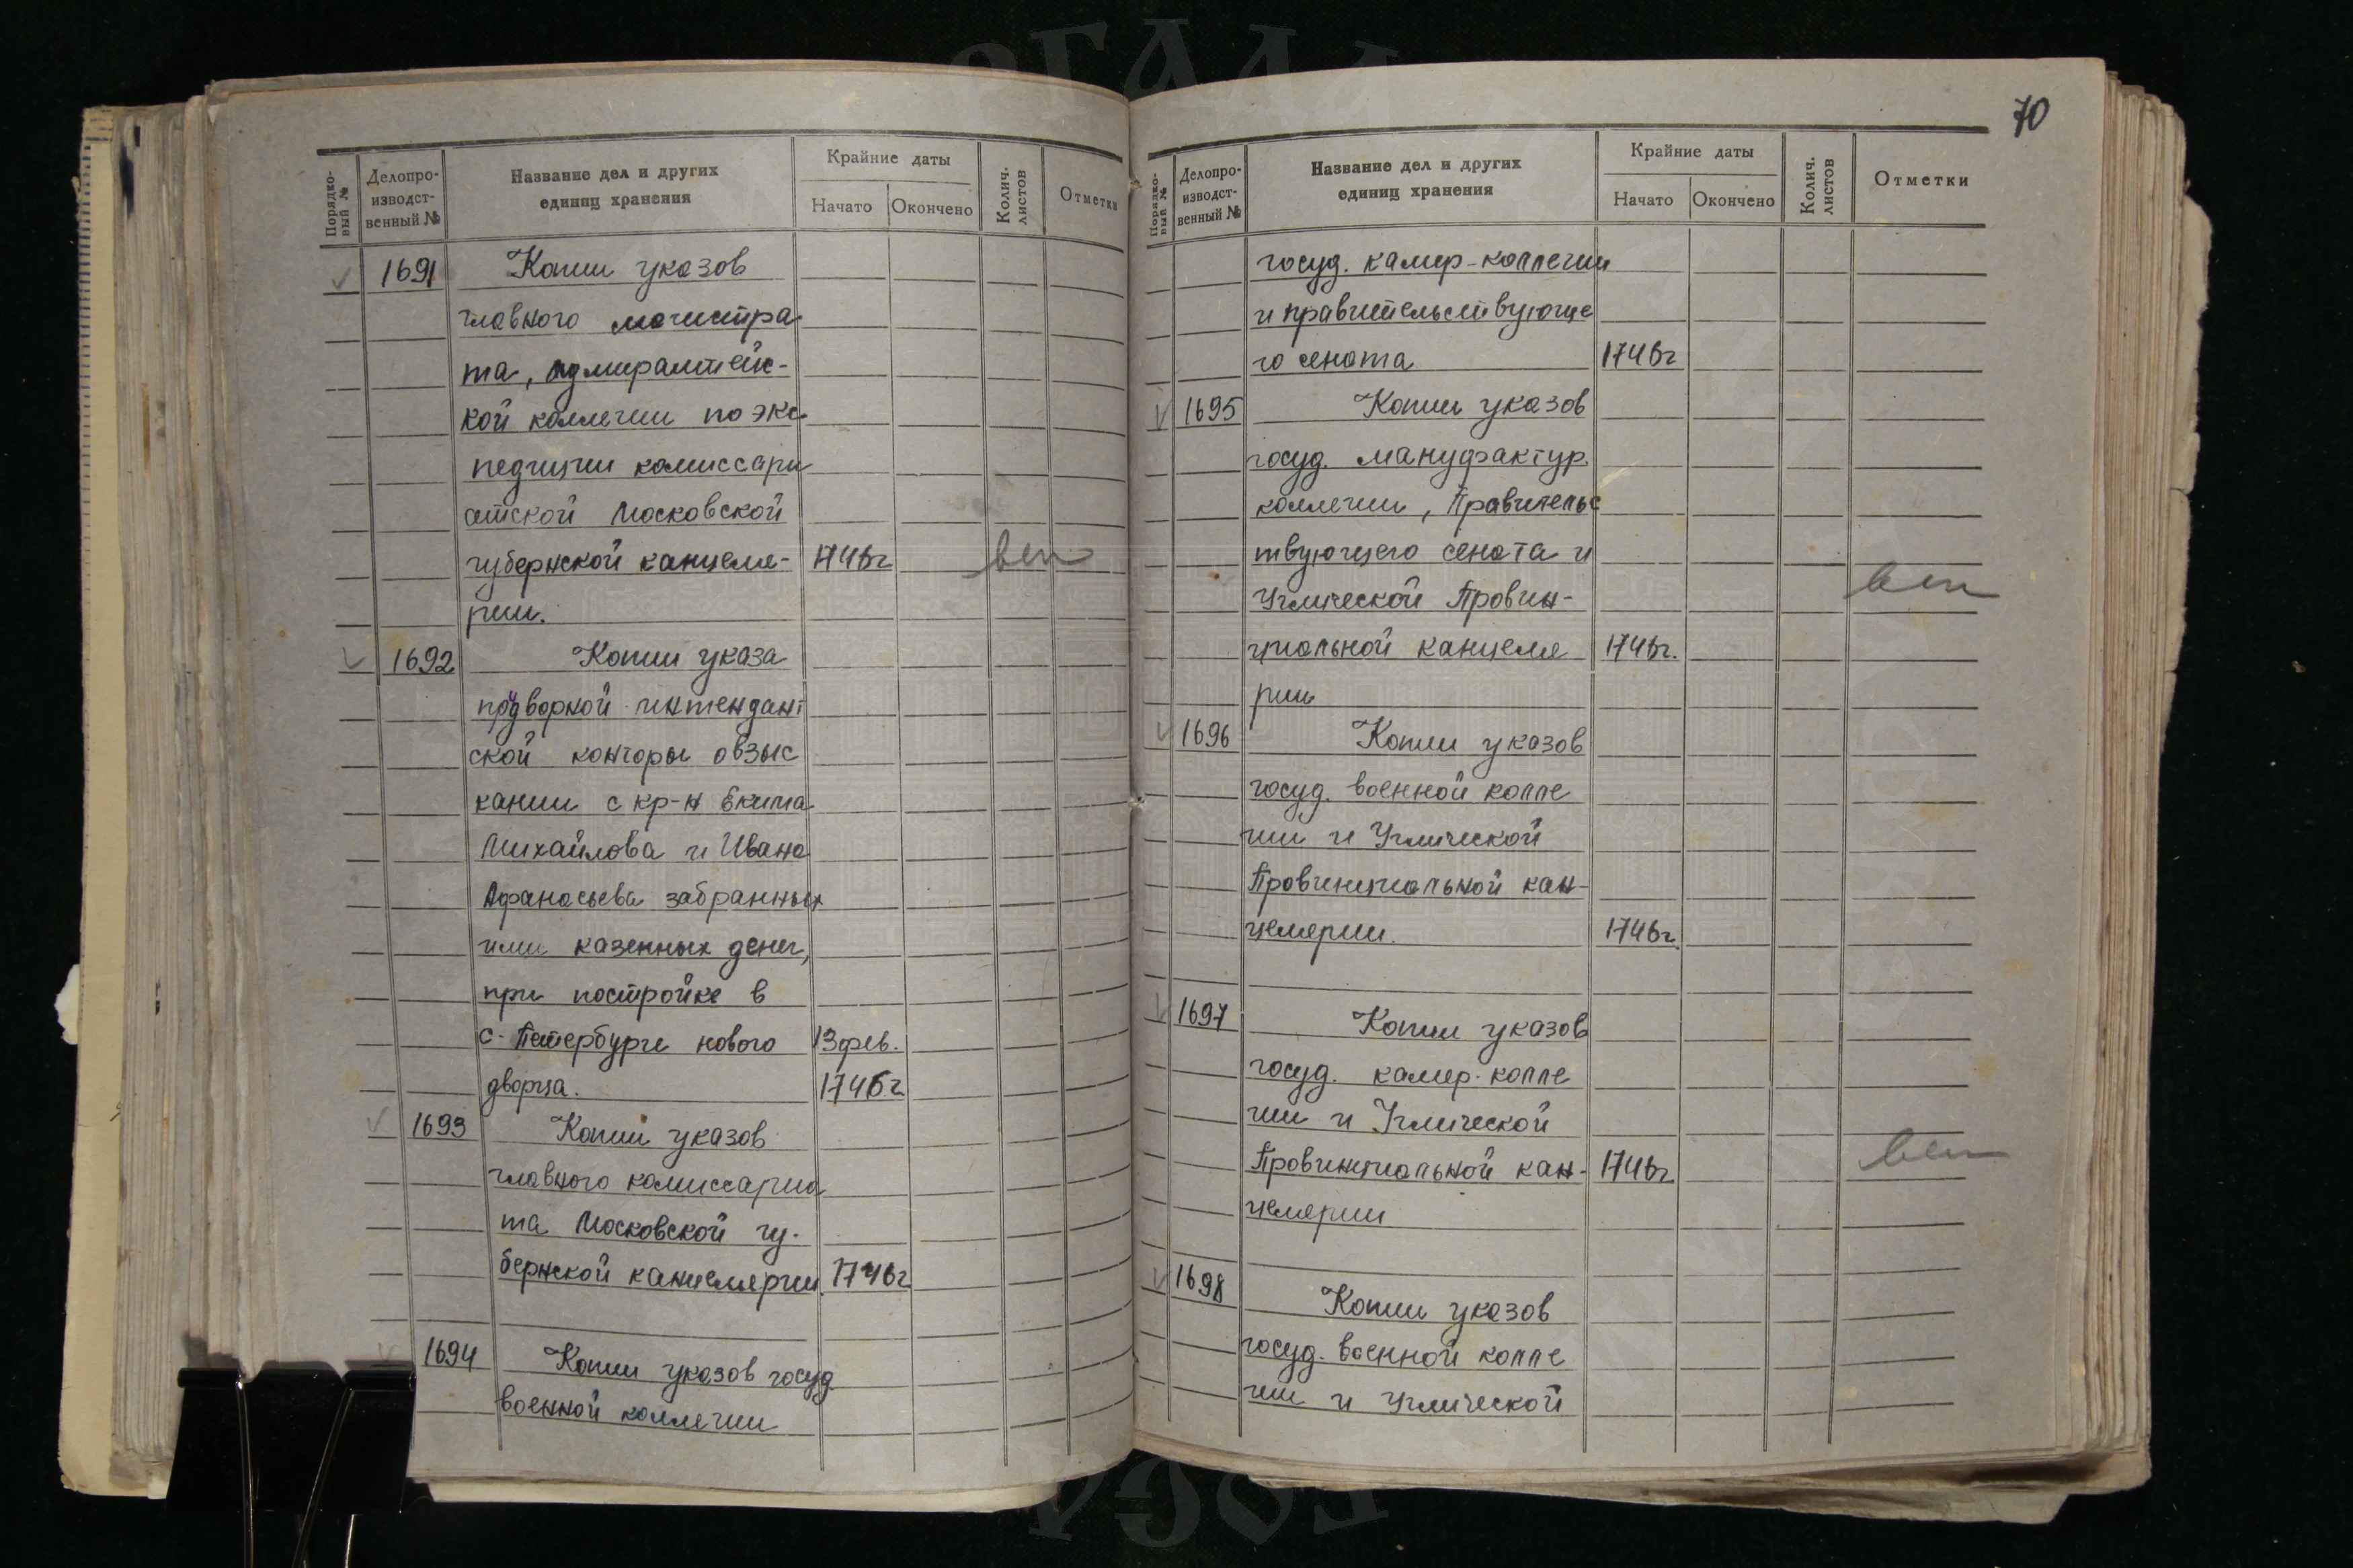 70
Порядковый №
Делопроизводственный №
Название дел и других единиц хранения
Крайние даты
Начато
Окончено
Колич. листов
Отметки
1691 Копии указов
главного магистра
та, Адмиралтейс-
кой коллегии по экс
педиции комиссари
атской Московской
губернской канцеля- 1746г
рии.
1692 Копии указа
придворной интендант
ской конторы о взыс
кании с кр-н Екима
Михайлова и Ивана
Афанасьева забранных
ими казенных денег,
при постройке в
с-Петербурге нового 13 фев.
дворца. 1746г
1693 Копии указов
главного комиссариа
та Московской гу-
бернской канцелярии 1746г
1694 Копии указов госуд
военной коллегии
Порядковый №
Делопроизводственный №
Название дел и других единиц хранения
Крайние даты
Начато
Окончено
Колич. листов
Отметки
госуд. камер-коллегии
и правительствующе
го сената 1746г
1695 Копии указов
госуд. мануфактур.
коллегии, Правительс
твующего сената и
Угличской Провин-
циальной канцеля 1746г.
рии
1696 Копии указов
госуд. военной колле
гии и Угличской
Провинциальной кан-
целярии. 1746г.
1697 Копии указов
госуд. камер-колле
гии и Угличской
Провинциальной кан- 1746г
целярии
1698 Копии указов
госуд. военной колле
гии и Угличской